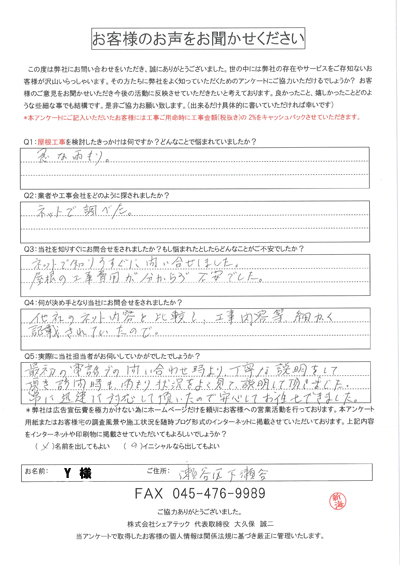 お客様のお声をお聞かせください
この度は弊社にお問い合わせをいただき、誠にありがとうございました。世の中には弊社の存在やサービスをご存知ないお
客様が沢山いらっしゃいます。その方たちに弊社をよく知っていただくためのアンケートにご協力いただけるでしょうか？ お客
様のご意見をお聞かせいただき今後の活動に反映させていただきたいと考えております。良かったこと、嬉しかったことどのよ
うな些細な事でも結構です。是非ご協力お願い致します。（出来るだけ具体的に書いていただければ幸いです）
*本アンケートにご記入いただいたお客様には工事ご用命時に工事金額(税抜き)の 2%をキャッシュバックさせていただきます。
Q1:屋根工事を検討したきっかけは何ですか？どんなことで悩まれていましたか？
急な雨もり。
Q2:業者や工事会社をどのように探されましたか？
ネットで調べた。
Q3:当社を知りすぐにお問合せをされましたか？もし悩まれたとしたらどんなことがご不安でしたか？
ネットで知りすぐに問い合せしました。
屋根の工事費用が分からず不安でした。
Q4:何が決め手となり当社にお問合せをされましたか？
他社のネット内容と比較し、工事内容等細かく
記載されていたので。
Q5:実際に当社担当者がお伺いしていかがでしたでしょうか？
最初の電話での問い合わせ時より、丁寧な説明をして
頂き訪問時も雨もり状況をよく見て、説明して頂きました。
常に迅速に対応して頂いたので安心してお任せできました。
*弊社は広告宣伝費を極力かけない為にホームページだけを頼りにお客様への営業活動を行っております。本アンケート
用紙またはお客様宅の調査風景や施工状況を随時ブログ形式でのインターネットに掲載させていただいております。上記内容
をインターネットや印刷物に掲載させていただいてもよろしいでしょうか？
( )名前を出してもよい ( )イニシャルなら出してもよい
お名前: Y 様 ご住所: 瀬谷区下瀬谷
FAX 045-476-9989
ご協力ありがとうございました。
株式会社シェアテック 代表取締役 大久保 誠二
当アンケートで取得したお客様の個人情報は関係法規に基づき厳正に管理いたします。